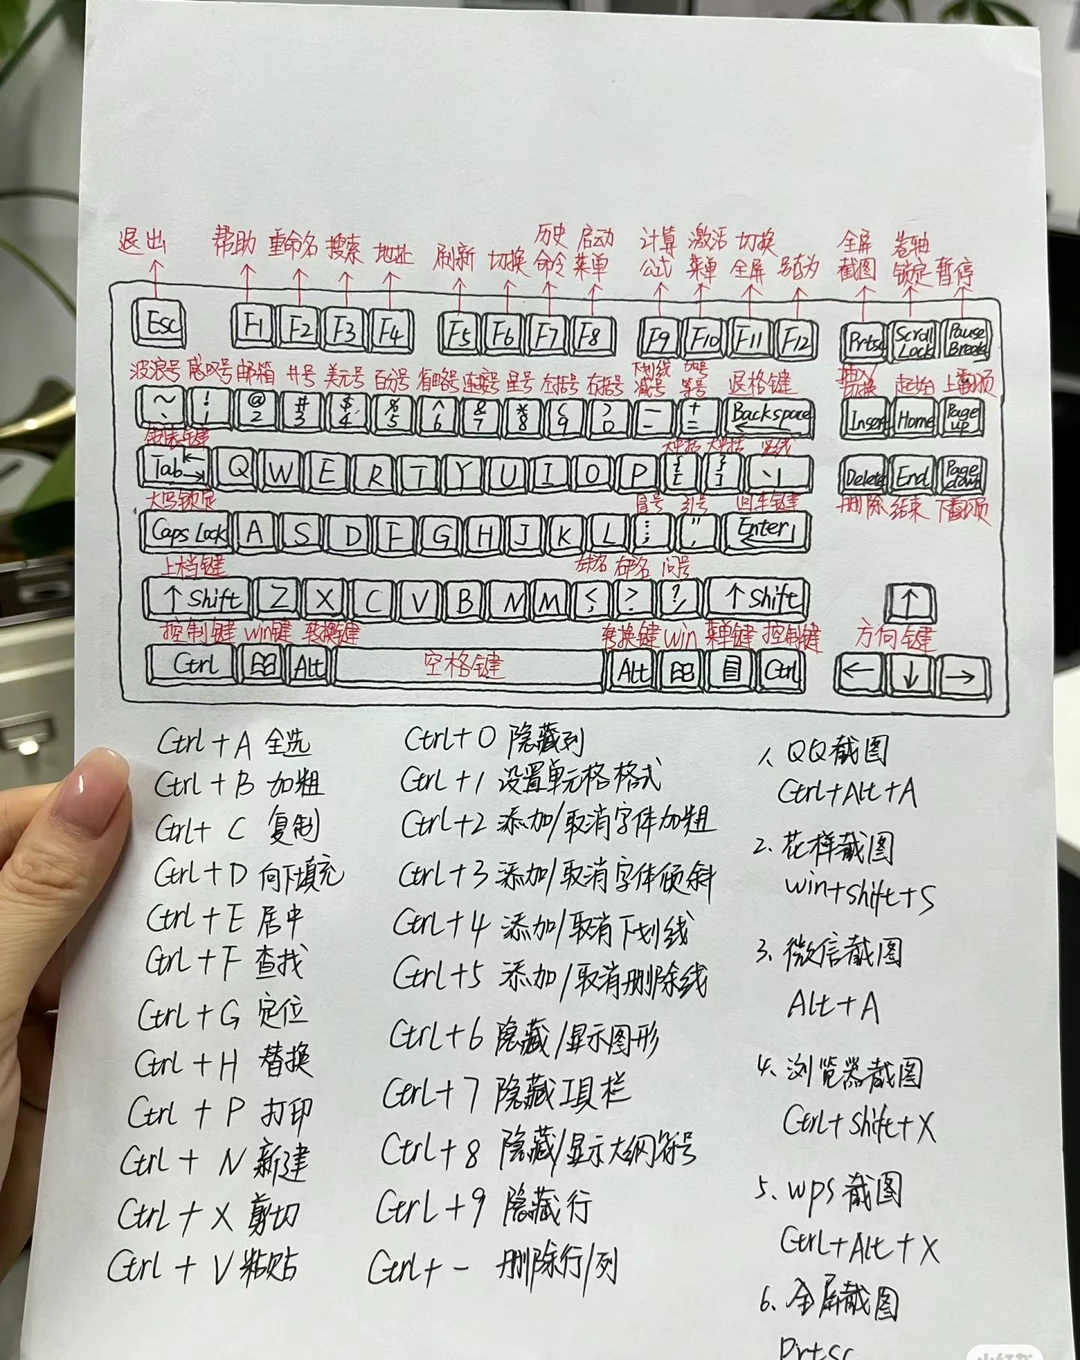 退出 帮助 重命名 搜索 地址 刷新 切换 历史命令 启动菜单 计算公式 激活菜单 切换全屏 另存为 全屏截图 卷轴锁定 暂停
Esc F1 F2 F3 F4 F5 F6 F7 F8 F9 F10 F11 F12 Prtsc Scroll Lock Pause Break
波浪号 感叹号 邮箱 井号 美元号 百分号 省略号 连接号 星号 左括号 右括号 下划线 减号 加号 等号 退格键 插入 切换 起始 上翻页
~ 、 ! 1 @ 2 # 3 $ 4 % 5 ^ 6 & 7 * 8 ( 9 ) 0 — - + = Backspace Insert Home Page up
Tab Q W E R T Y U I O P { [ } ] 、 | Delete End Page down
大写锁定 冒号 引号 回车键 删除 结束 下翻页
Caps Lock A S D F G H J K L : ; " ' Enter
上档键 问号
↑ Shift Z X C V B N M < , > . ? / ↑ Shift ↑
控制键 win键 转换键 变换键 win 菜单键 控制键 方向键
Ctrl Alt 空格键 Alt Ctrl ← ↓ →
Ctrl + A 全选
Ctrl + B 加粗
Ctrl + C 复制
Ctrl + D 向下填充
Ctrl + E 居中
Ctrl + F 查找
Ctrl + G 定位
Ctrl + H 替换
Ctrl + P 打印
Ctrl + N 新建
Ctrl + X 剪切
Ctrl + V 粘贴
Ctrl + 0 隐藏列
Ctrl + 1 设置单元格格式
Ctrl + 2 添加/取消字体加粗
Ctrl + 3 添加/取消字体倾斜
Ctrl + 4 添加/取消下划线
Ctrl + 5 添加/取消删除线
Ctrl + 6 隐藏/显示图形
Ctrl + 7 隐藏工具栏
Ctrl + 8 隐藏/显示大纲符号
Ctrl + 9 隐藏行
Ctrl + - 删除行/列
1、QQ截图
Ctrl+Alt+A
2、花样截图
win+shift+S
3、微信截图
Alt+A
4、浏览器截图
Ctrl+shift+X
5、wps截图
Ctrl+Alt+X
6、全屏截图
Prtsc
小红书